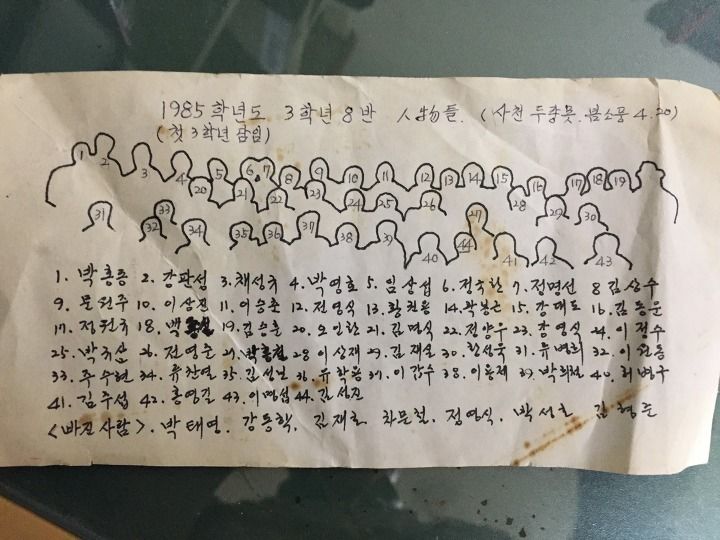 1985 학년도 3학년 8반 人物들. (사천 두량못. 봄소풍 4.20)
(첫 3학년 담임)
1 2 3 4 5 6 7 8 9 10 11 12 13 14 15 16 17 18 19
20 21 22 23 24 25 26 28 29 30
31 32 33 34 35 36 37 38 39 27 40 44 41 42 43
1. 박흥룡 2. 강판섭 3. 채성규 4. 박영효 5. 임상섭 6. 정국한 7. 전명선 8 김상수
9. 문원주 10. 이상진 11. 이승훈 12. 전영식 13. 황권용 14. 15. 강대도 16. 김동운
17. 정원규 18. 19. 김승훈 20. 오인환 21. 김명식 22. 전양우 23. 강영식 24. 이정수
25. 박규삼 26. 전연준 27. 28 이상재 29. 김재술 30. 31. 유변희 32. 이원동
33. 주수현 34. 유찬열 35. 36. 유학용 37. 이갑수 38. 이용제 39. 박희전 40. 허병구
41. 김주섭 42. 홍영길 43. 44. 김성조
<빠진 사람>. 박태영. 강동학. 김재호 차문철. 정영식. 박서호 김형준